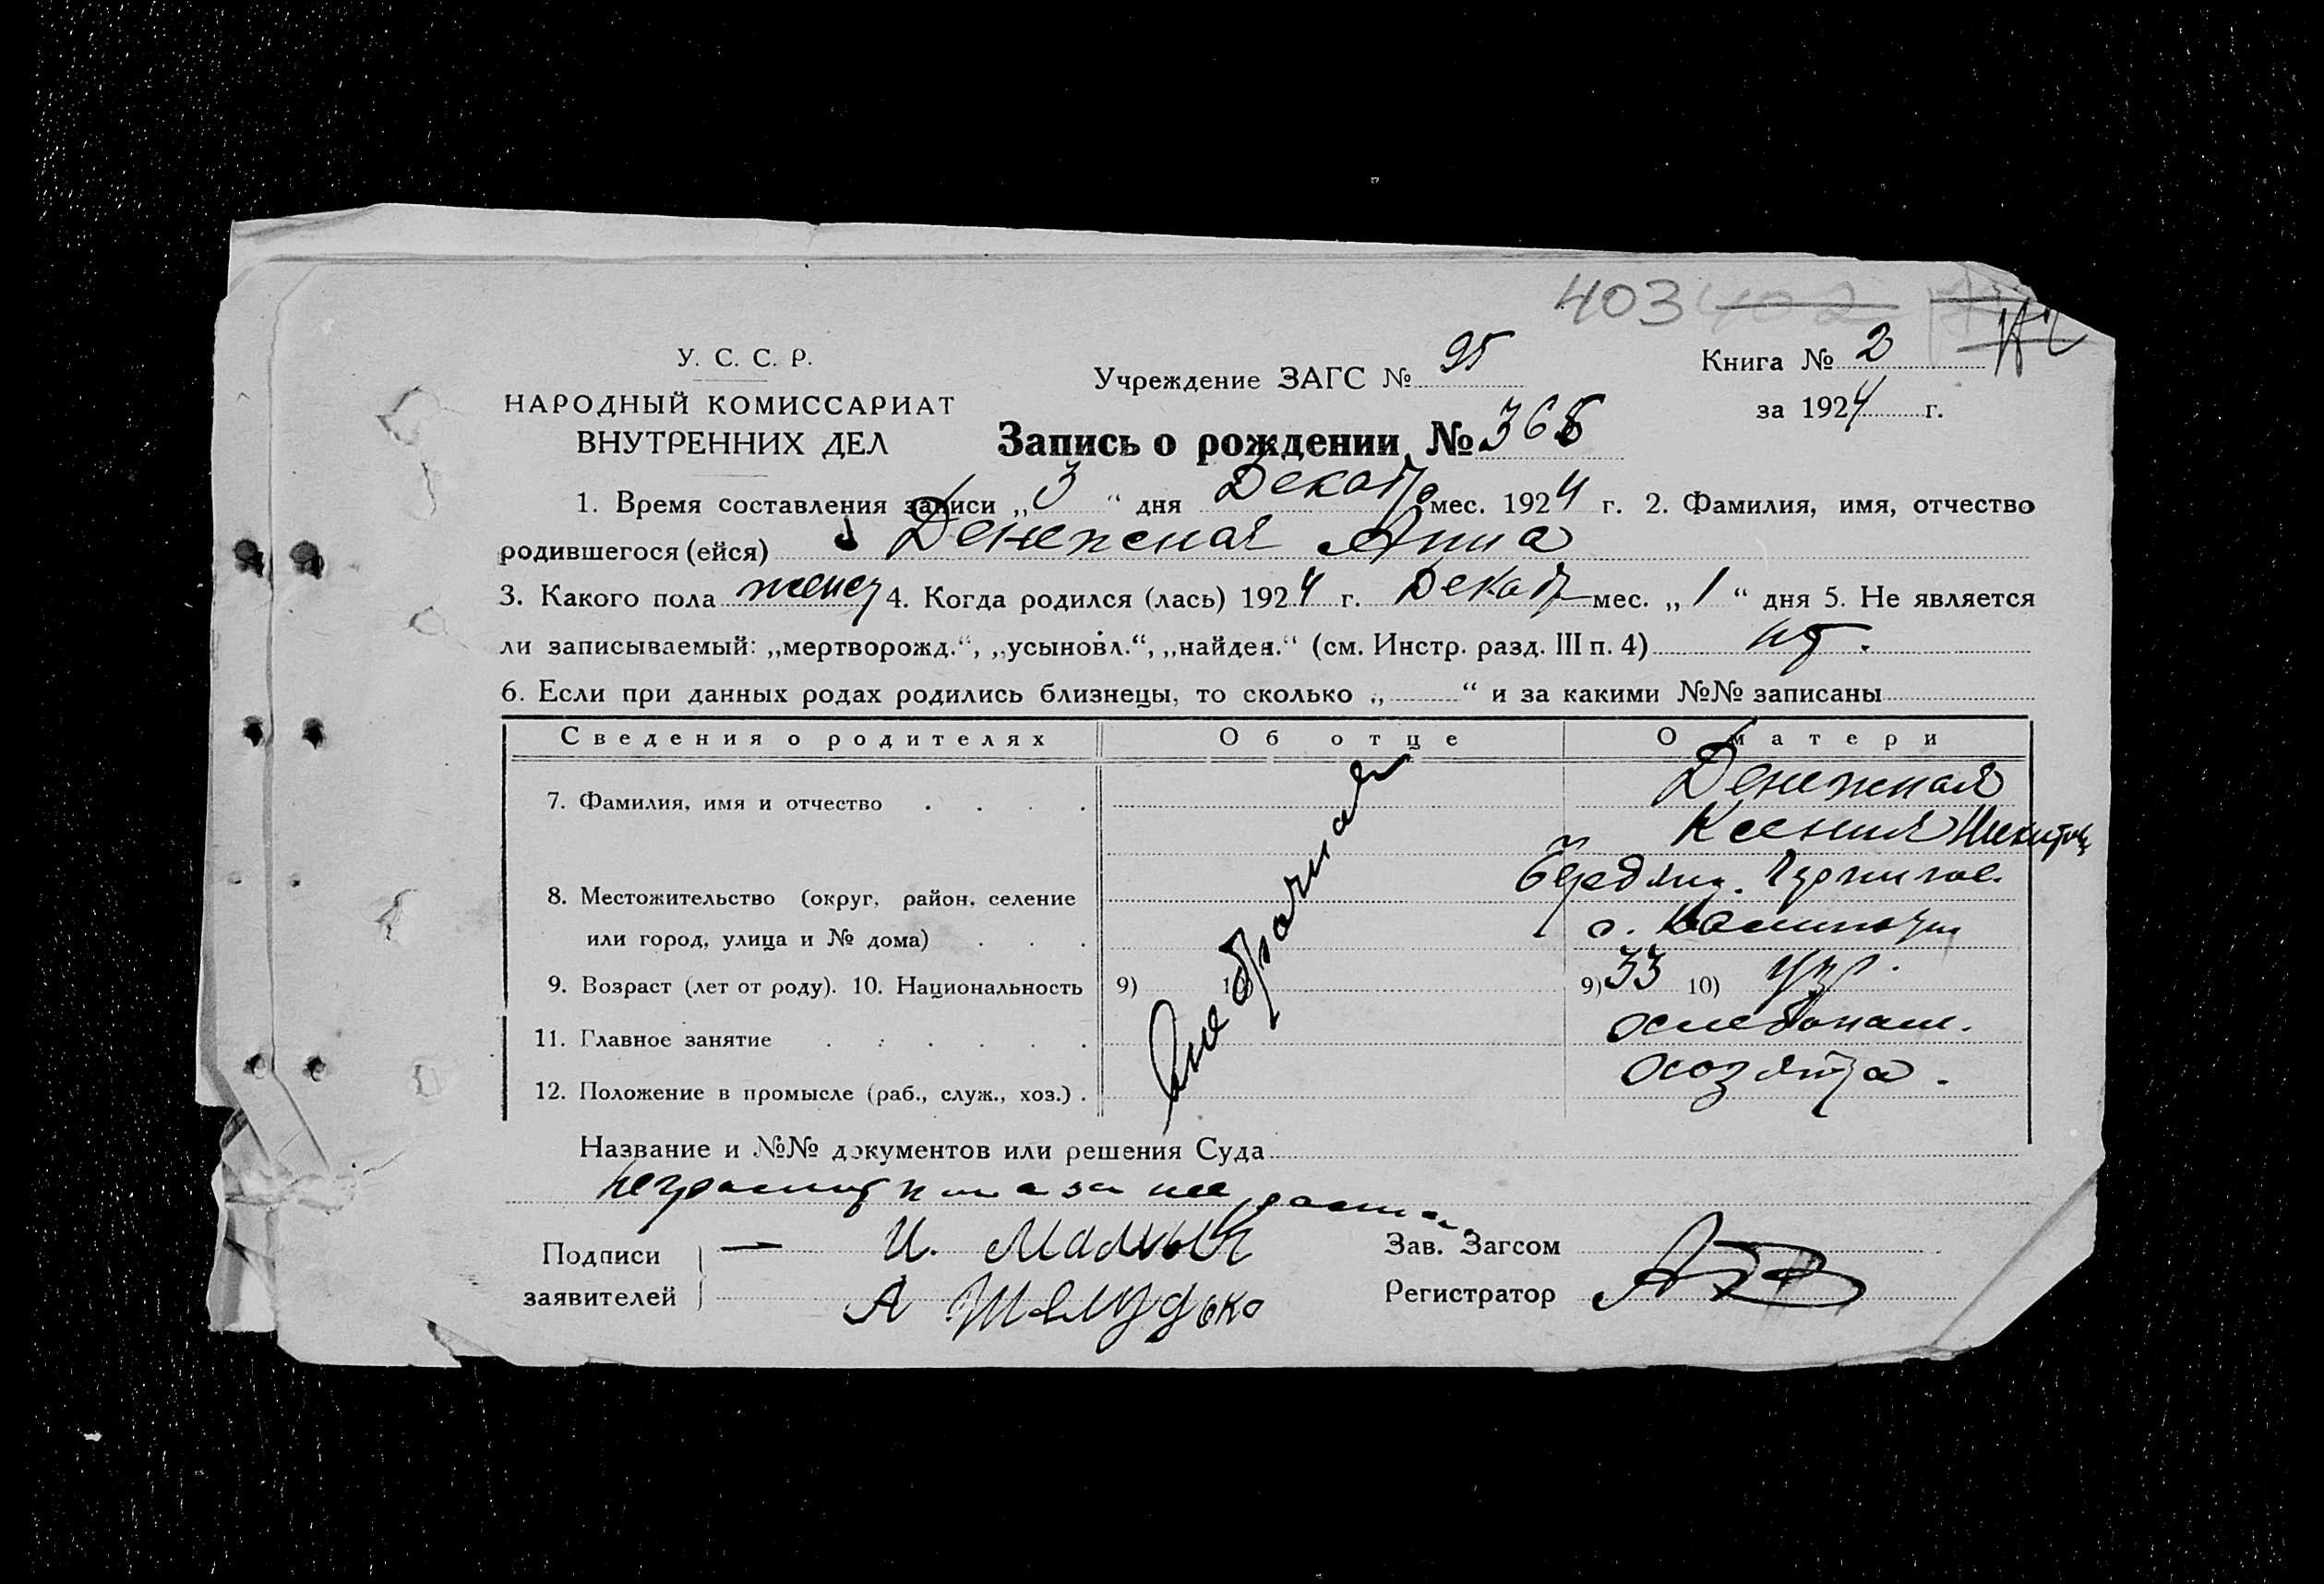 403 402
У. С. С. Р.
НАРОДНЫЙ КОМИССАРИАТ
ВНУТРЕННИХ ДЕЛ
Учреждение ЗАГС № 95
Книга № 2
за 1924 г.
Запись о рождении № 368
1. Время составления записи „ 3 “ дня Декабр мес. 1924 г. 2. Фамилия, имя, отчество
родившегося (ейся) Денежная Анна
3. Какого пола женск 4. Когда родился (лась) 1924 г. Декабр мес. „ 1 “ дня 5. Не является
ли записываемый: „мертворожд.“, „усыновл.“, „найден.“ (см. Инстр. разд. III п. 4) нет.
6. Если при данных родах родились близнецы, то сколько „ “ и за какими №№ записаны
Сведения о родителях Об отце О матери
7. Фамилия, имя и отчество . . . . Денежная
Ксения Никитов
8. Местожительство (округ, район, селение Бердянц. Чернигов.
или город, улица и № дома) . . . с.
9. Возраст (лет от роду). 10. Национальность 9) 10) 9) 33 10) укр.
11. Главное занятие . . . . . . хлебопаш.
12. Положение в промысле (раб., служ., хоз.) . хозяйка.
Внебрачная
Название и №№ документов или решения Суда
неграмотна за нее
Подписи заявителей — И.
А Шелудько
Зав. Загсом
Регистратор